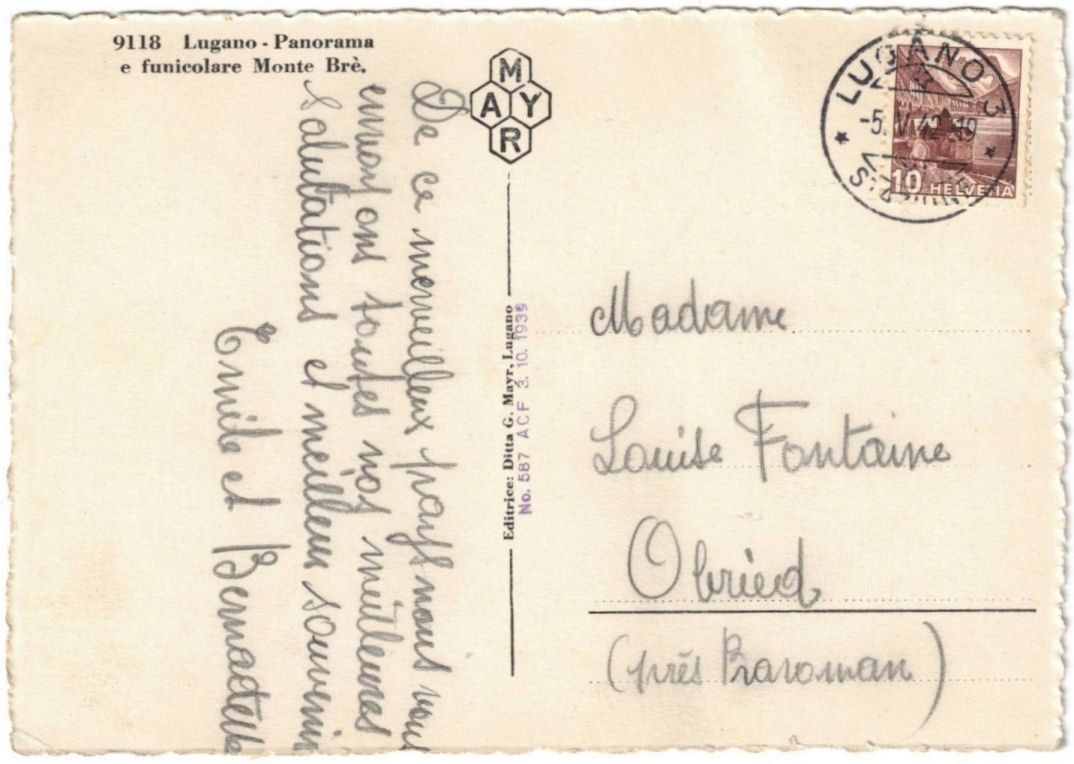 9118 Lugano - Panorama
e funicolare Monte Brè.
MAYR
LUGANO 3
-5. V. 42 -19
10 HELVETIA
De ce merveilleux pays nous vous
envoyons toutes nos meilleures
salutations et meilleur souvenir
Emile et Bernadette
Editrice: Ditta G. Mayr, Lugano
No. 587 ACF 3. 10. 1939
Madame
Louise Fontaine
Obried
(près Praroman)